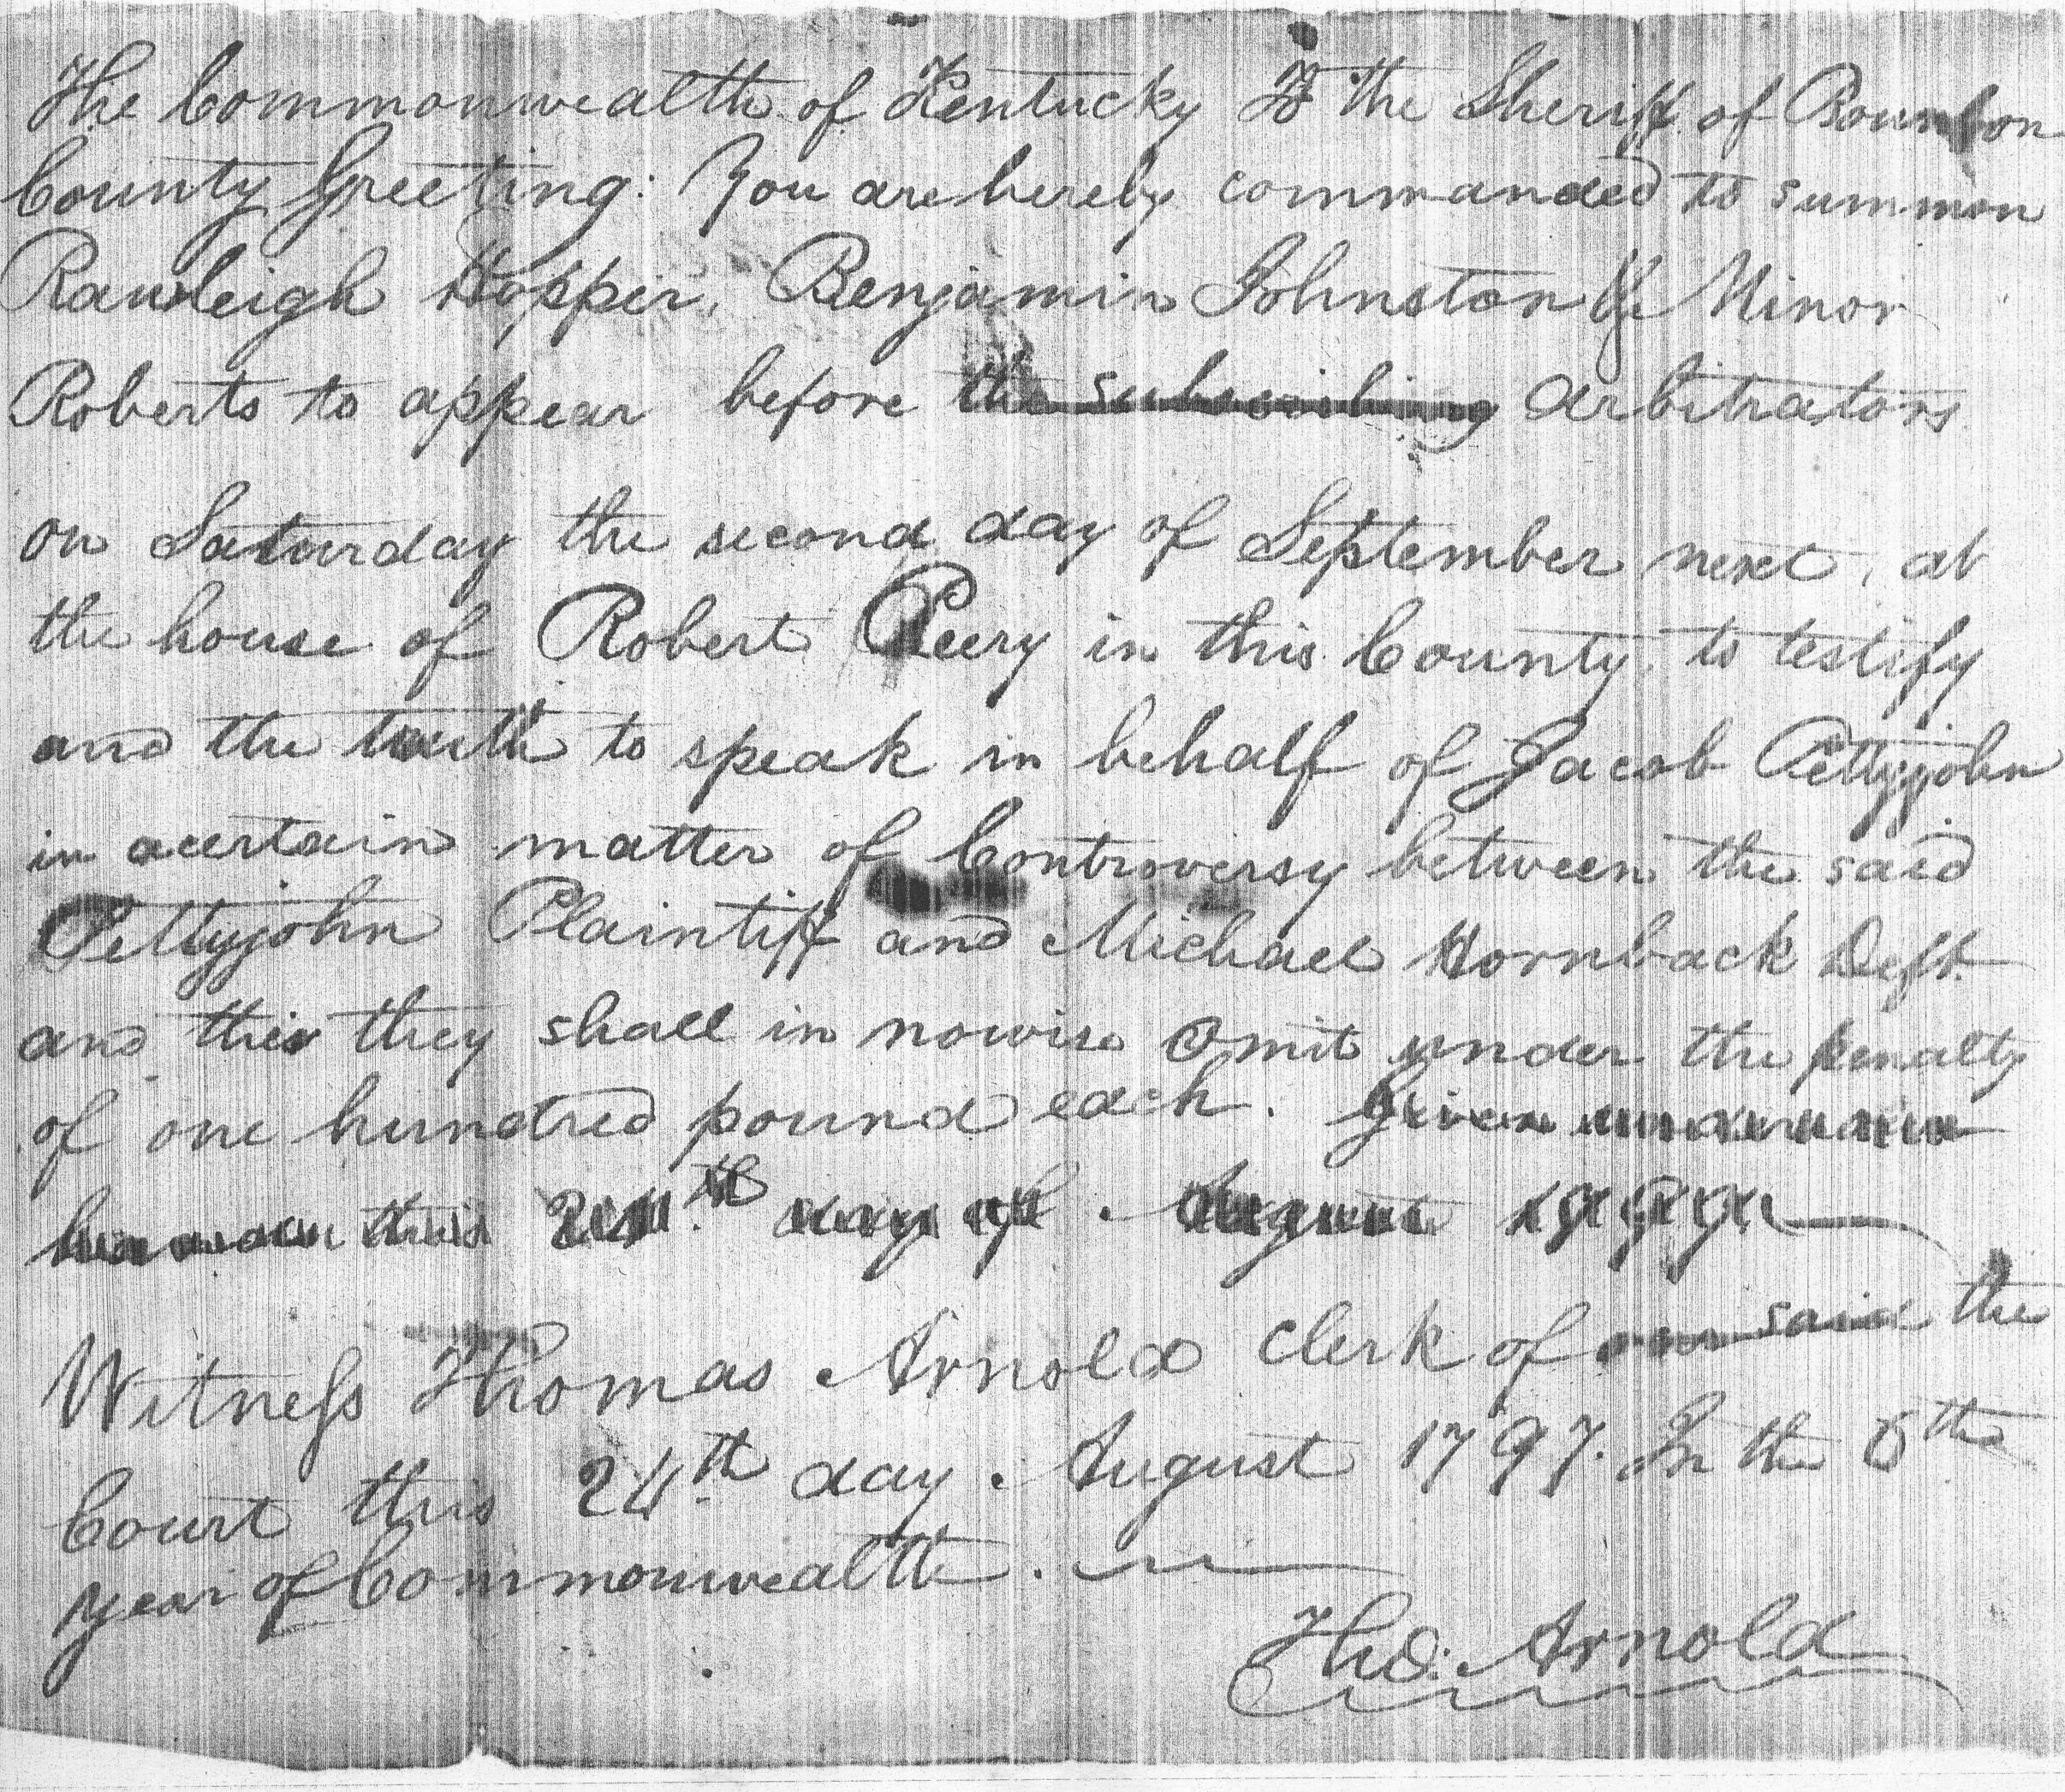 The Commonwealth of Kentucky To the Sheriff of Bourbon
County Greeting: You are hereby commanded to summon
Rawleigh Hopper, Benjamin Johnston & Minor
Roberts to appear before the subscribing Arbitrators
on Saturday the second day of September next, at
the house of Robert Peery in this County to testify
and the truth to speak in behalf of Jacob Pettyjohn
in a certain matter of Controversy between the said
Pettyjohn Plaintiff and Michael Hornback Deft.
and this they shall in nowise Omit under the penalty
of one hundred pound each. Given under our
hands this 24th day of August 1797
Witness Thomas Arnold Clerk of our said the
Court this 24th day August 1797. In the 6th
year of Commonwealth.
Tho: Arnold